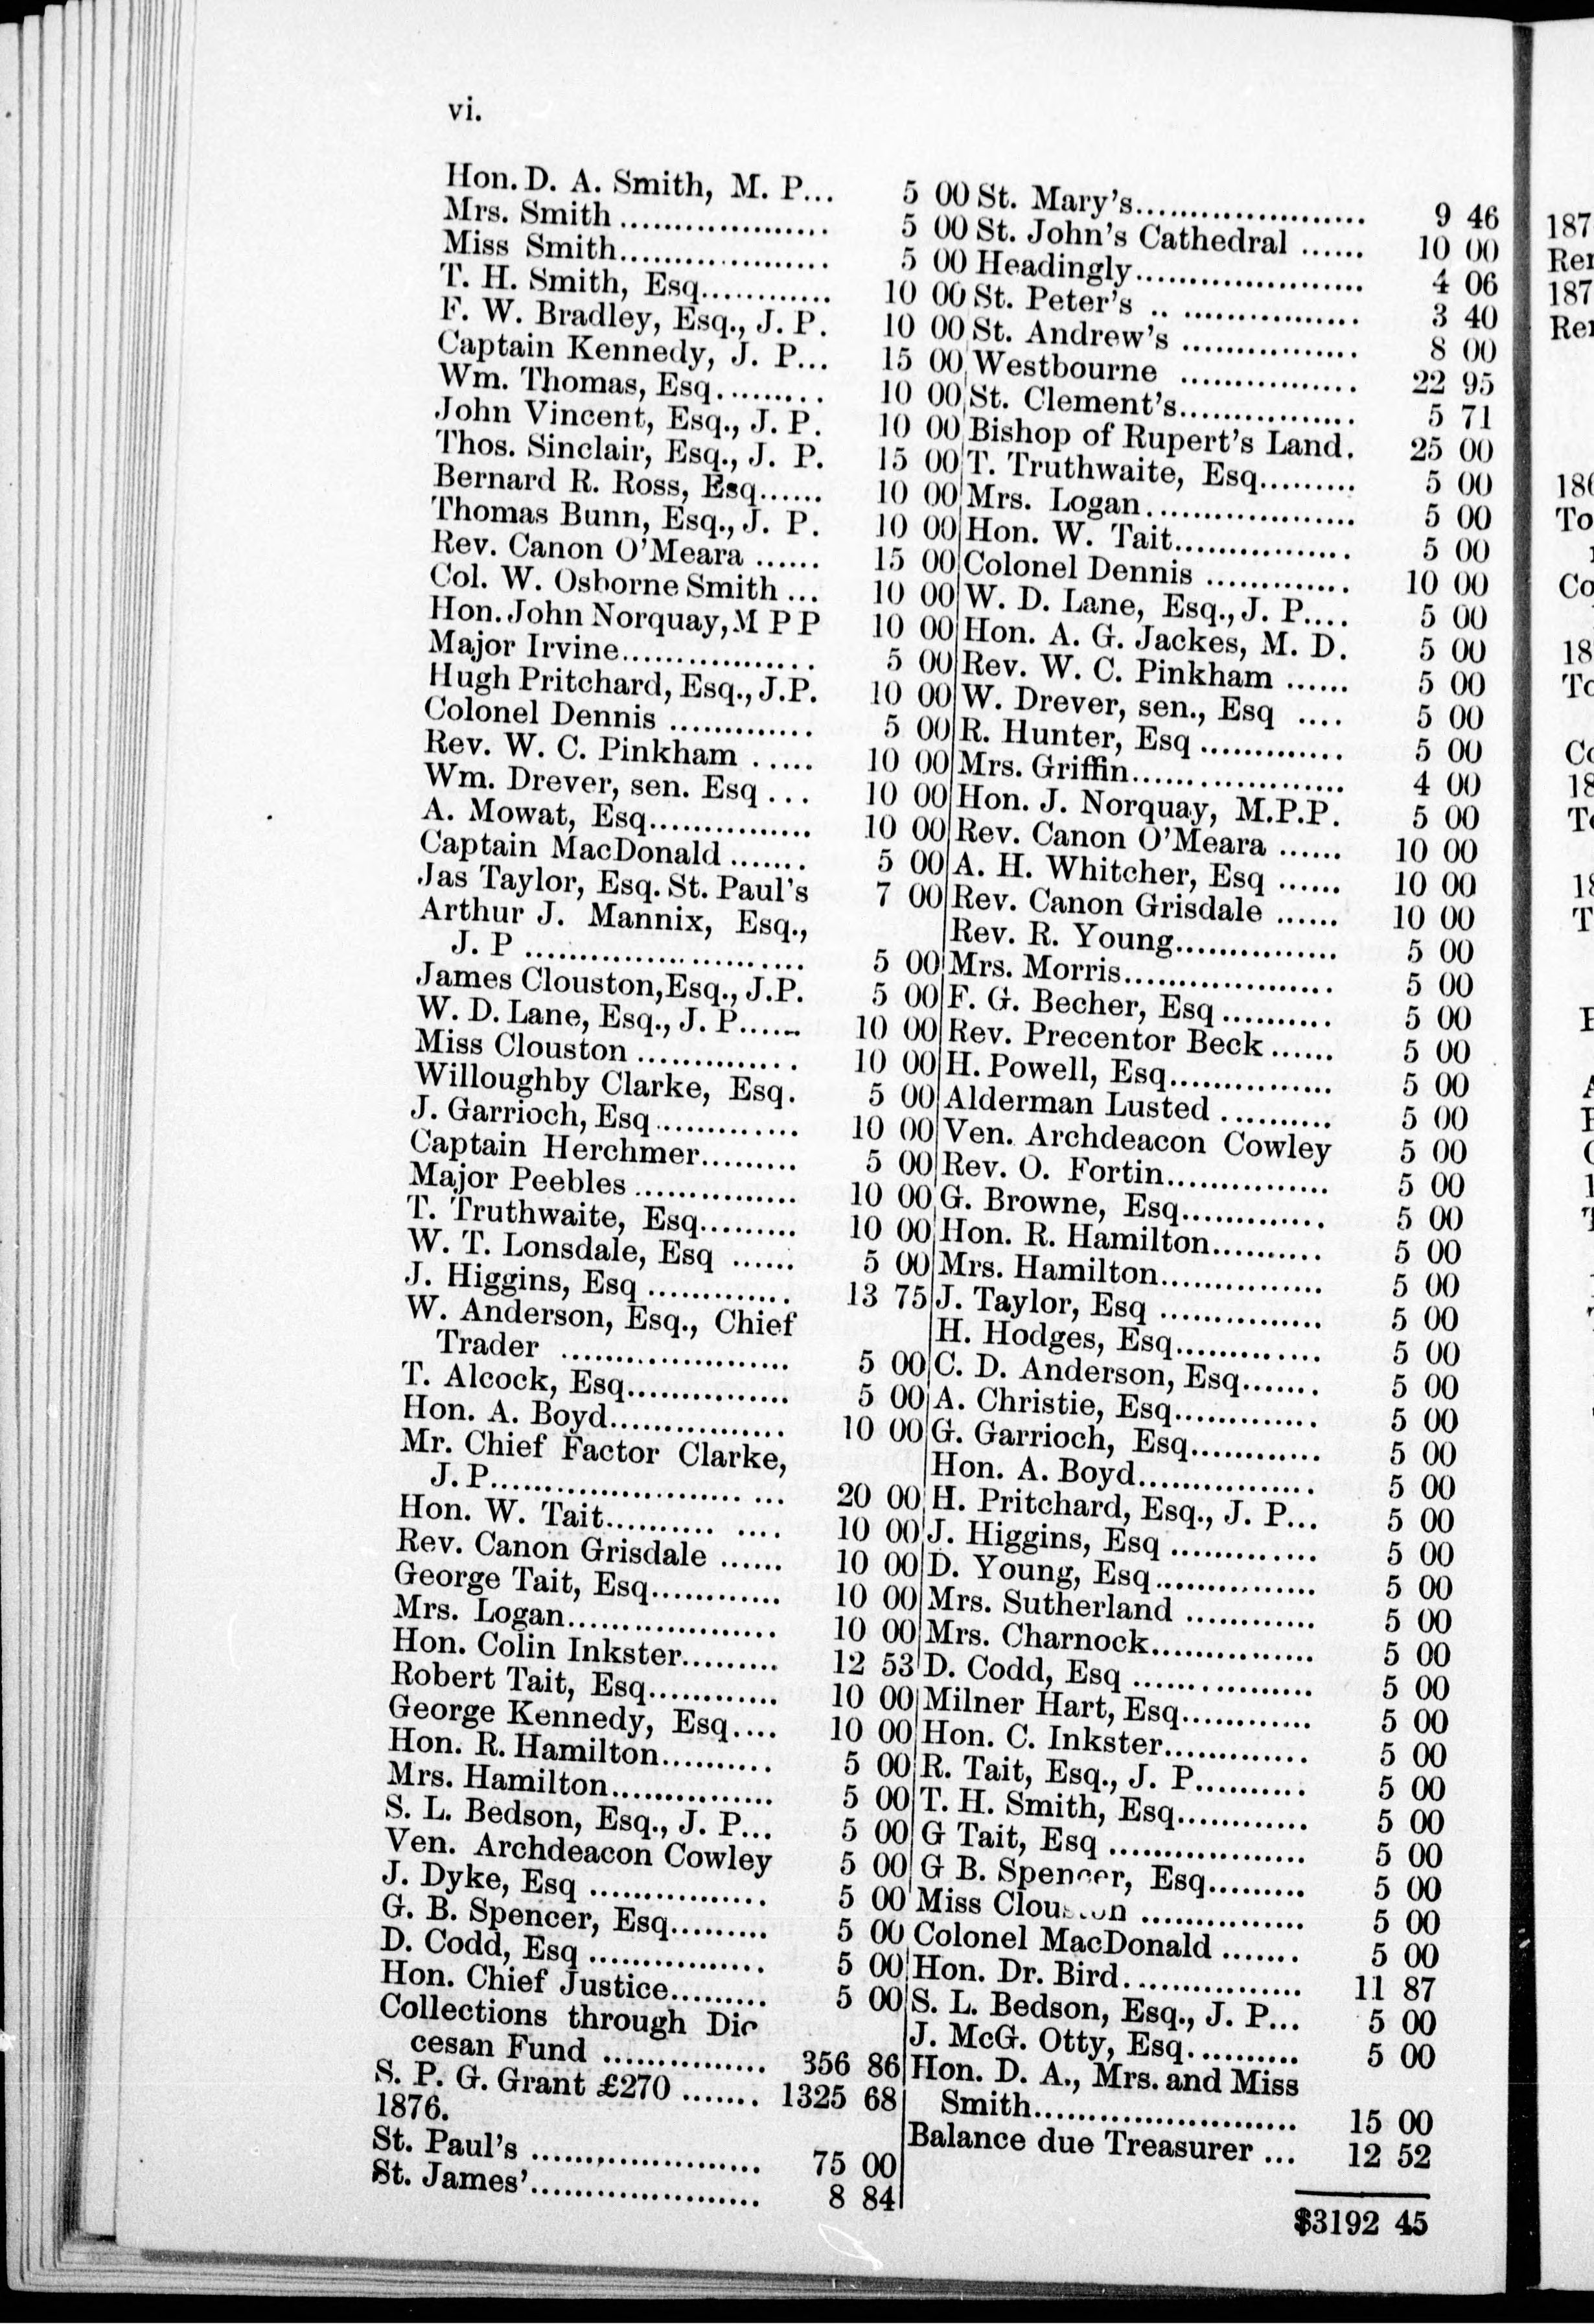 vi.
Hon. D. A. Smith, M. P... 5 00
Mrs. Smith ................... 5 00
Miss Smith................... 5 00
T. H. Smith, Esq............ 10 00
F. W. Bradley, Esq., J. P. 10 00
Captain Kennedy, J. P... 15 00
Wm. Thomas, Esq.......... 10 00
John Vincent, Esq., J. P. 10 00
Thos. Sinclair, Esq., J. P. 15 00
Bernard R. Ross, Esq...... 10 00
Thomas Bunn, Esq., J. P. 10 00
Rev. Canon O'Meara ...... 15 00
Col. W. Osborne Smith ... 10 00
Hon. John Norquay, M P P 10 00
Major Irvine................. 5 00
Hugh Pritchard, Esq., J.P. 10 00
Colonel Dennis ............. 5 00
Rev. W. C. Pinkham ..... 10 00
Wm. Drever, sen. Esq ... 10 00
A. Mowat, Esq............... 10 00
Captain MacDonald ....... 5 00
Jas Taylor, Esq. St. Paul's 7 00
Arthur J. Mannix, Esq.,
J. P ......................... 5 00
James Clouston, Esq., J.P. 5 00
W. D. Lane, Esq., J. P...... 10 00
Miss Clouston ............... 10 00
Willoughby Clarke, Esq. 5 00
J. Garrioch, Esq............. 10 00
Captain Herchmer......... 5 00
Major Peebles ............... 10 00
T. Truthwaite, Esq......... 10 00
W. T. Lonsdale, Esq ...... 5 00
J. Higgins, Esq ............. 13 75
W. Anderson, Esq., Chief
Trader ..................... 5 00
T. Alcock, Esq............... 5 00
Hon. A. Boyd................ 10 00
Mr. Chief Factor Clarke,
J. P........................... 20 00
Hon. W. Tait.......... .... 10 00
Rev. Canon Grisdale ...... 10 00
George Tait, Esq............ 10 00
Mrs. Logan................... 10 00
Hon. Colin Inkster......... 12 53
Robert Tait, Esq............ 10 00
George Kennedy, Esq.... 10 00
Hon. R. Hamilton.......... 5 00
Mrs. Hamilton............... 5 00
S. L. Bedson, Esq., J. P... 5 00
Ven. Archdeacon Cowley 5 00
J. Dyke, Esq ................ 5 00
G. B. Spencer, Esq......... 5 00
D. Codd, Esq ................ 5 00
Hon. Chief Justice......... 5 00
Collections through Dio
cesan Fund ............... 356 86
S. P. G. Grant £270 ....... 1325 68
1876.
St. Paul's ..................... 75 00
St. James'..................... 8 84
St. Mary's..................... 9 46
St. John's Cathedral ...... 10 00
Headingly..................... 4 06
St. Peter's .. ................ 3 40
St. Andrew's ................ 8 00
Westbourne ................ 22 95
St. Clement's................ 5 71
Bishop of Rupert's Land. 25 00
T. Truthwaite, Esq......... 5 00
Mrs. Logan................... 5 00
Hon. W. Tait................ 5 00
Colonel Dennis ............. 10 00
W. D. Lane, Esq., J. P.... 5 00
Hon. A. G. Jackes, M. D. 5 00
Rev. W. C. Pinkham ...... 5 00
W. Drever, sen., Esq .... 5 00
R. Hunter, Esq ............. 5 00
Mrs. Griffin................... 4 00
Hon. J. Norquay, M.P.P. 5 00
Rev. Canon O'Meara ...... 10 00
A. H. Whitcher, Esq ...... 10 00
Rev. Canon Grisdale ...... 10 00
Rev. R. Young............... 5 00
Mrs. Morris................... 5 00
F. G. Becher, Esq .......... 5 00
Rev. Precentor Beck ...... 5 00
H. Powell, Esq............... 5 00
Alderman Lusted .......... 5 00
Ven. Archdeacon Cowley 5 00
Rev. O. Fortin............... 5 00
G. Browne, Esq............. 5 00
Hon. R. Hamilton.......... 5 00
Mrs. Hamilton............... 5 00
J. Taylor, Esq ............... 5 00
H. Hodges, Esq............. 5 00
C. D. Anderson, Esq....... 5 00
A. Christie, Esq............. 5 00
G. Garrioch, Esq............ 5 00
Hon. A. Boyd................ 5 00
H. Pritchard, Esq., J. P... 5 00
J. Higgins, Esq ............. 5 00
D. Young, Esq............... 5 00
Mrs. Sutherland ............ 5 00
Mrs. Charnock............... 5 00
D. Codd, Esq ................ 5 00
Milner Hart, Esq............ 5 00
Hon. C. Inkster............. 5 00
R. Tait, Esq., J. P.......... 5 00
T. H. Smith, Esq............ 5 00
G Tait, Esq .................. 5 00
G B. Spencer, Esq......... 5 00
Miss Clouston ............... 5 00
Colonel MacDonald ....... 5 00
Hon. Dr. Bird................ 11 87
S. L. Bedson, Esq., J. P... 5 00
J. McG. Otty, Esq.......... 5 00
Hon. D. A., Mrs. and Miss
Smith........................ 15 00
Balance due Treasurer ... 12 52
$3192 45